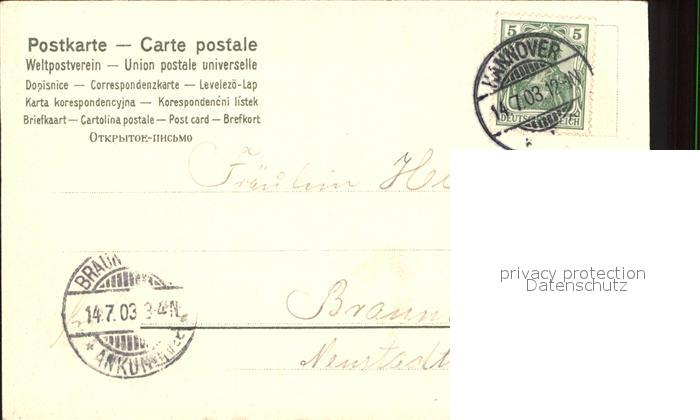 Postkarte — Carte postale
Weltpostverein — Union postale universelle
Dopisnice — Correspondenzkarte — Levelező-Lap
Karta korespondencyjna — Korespondenční lístek
Briefkaart — Cartolina postale — Post card — Brefkort
Открытое-письмо
5 5
HANNOVER
14.7.03.12-1N.
DEUTSCHES REICH
Fräulein He
privacy protection
Datenschutz
BRAUN
14.7.03 3-4N.
* ANKUN
Braun
Neustadt